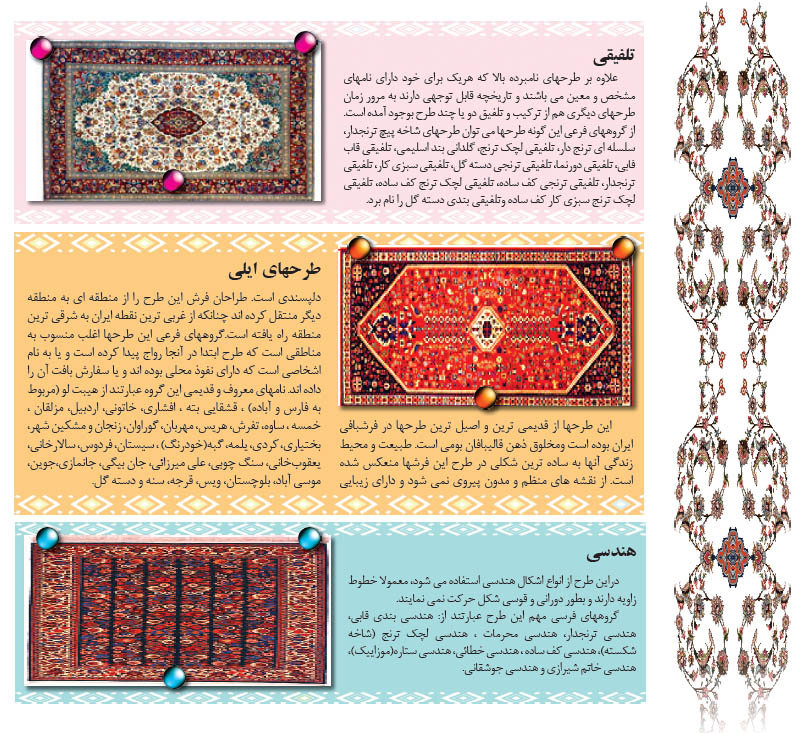 تلفیقی
علاوه بر طرحهای نامبرده بالا که هریک برای خود دارای نامهای
مشخص و معین می باشند و تاریخچه قابل توجهی دارند به مرور زمان
طرحهای دیگری هم از ترکیب و تلفیق دو یا چند طرح بوجود آمده است.
از گروههای فرعی این گونه طرحها می توان طرحهای شاخه پیچ ترنجدار،
سلسله ای ترنج دار، تلفیقی لچک ترنج، گلدانی بند اسلیمی، تلفیقی قاب
قابی، تلفیقی دورنما، تلفیقی ترنجی دسته گل، تلفیقی سبزی کار، تلفیقی
ترنجدار، تلفیقی ترنجی کف ساده، تلفیقی لچک ترنج کف ساده، تلفیقی
لچک ترنج سبزی کار کف ساده وتلفیقی بندی دسته گل را نام برد.
طرحهای ایلی
این طرحها از قدیمی ترین و اصیل ترین طرحها در فرشبافی
ایران بوده است ومخلوق ذهن قالیبافان بومی است. طبیعت و محیط
زندگی آنها به ساده ترین شکلی در طرح این فرشها منعکس شده
است. از نقشه های منظم و مدون پیروی نمی شود و دارای زیبایی
دلپسندی است. طراحان فرش این طرح را از منطقه ای به منطقه
دیگر منتقل کرده اند چنانکه از غربی ترین نقطه ایران به شرقی ترین
منطقه راه یافته است.گروههای فرعی این طرحها اغلب منسوب به
مناطقی است که طرح ابتدا در آنجا رواج پیدا کرده است و یا به نام
اشخاصی است که دارای نفوذ محلی بوده اند و یا سفارش بافت آن را
داده اند. نامهای معروف و قدیمی این گروه عبارتند از هیبت لو (مربوط
به فارس و آباده) ، قشقایی بته ، افشاری، خاتونی، اردبیل، مزلقان ،
خمسه ، ساوه، تفرش، هریس، مهربان، گوراوان، زنجان و مشکین شهر،
بختیاری، کردی، یلمه، گبه(خودرنگ) ، سیستان، فردوس، سالارخانی،
یعقوب‌خانی، سنگ چویی، علی میرزائی، جان بیگی، جانمازی،جوین،
موسی آباد، بلوچستان، ویس، قرجه، سنه و دسته گل.
هندسی
دراین طرح از انواع اشکال هندسی استفاده می شود، معمولا خطوط
زاویه دارند و بطور دورانی و قوسی شکل حرکت نمی نمایند.
گروههای فرسی مهم این طرح عبارتند از: هندسی بندی قابی،
هندسی ترنجدار، هندسی محرمات ، هندسی لچک ترنج (شاخه
شکسته)، هندسی کف ساده ، هندسی خطائی، هندسی ستاره(موزاییک)،
هندسی خاتم شیرازی و هندسی جوشقانی.